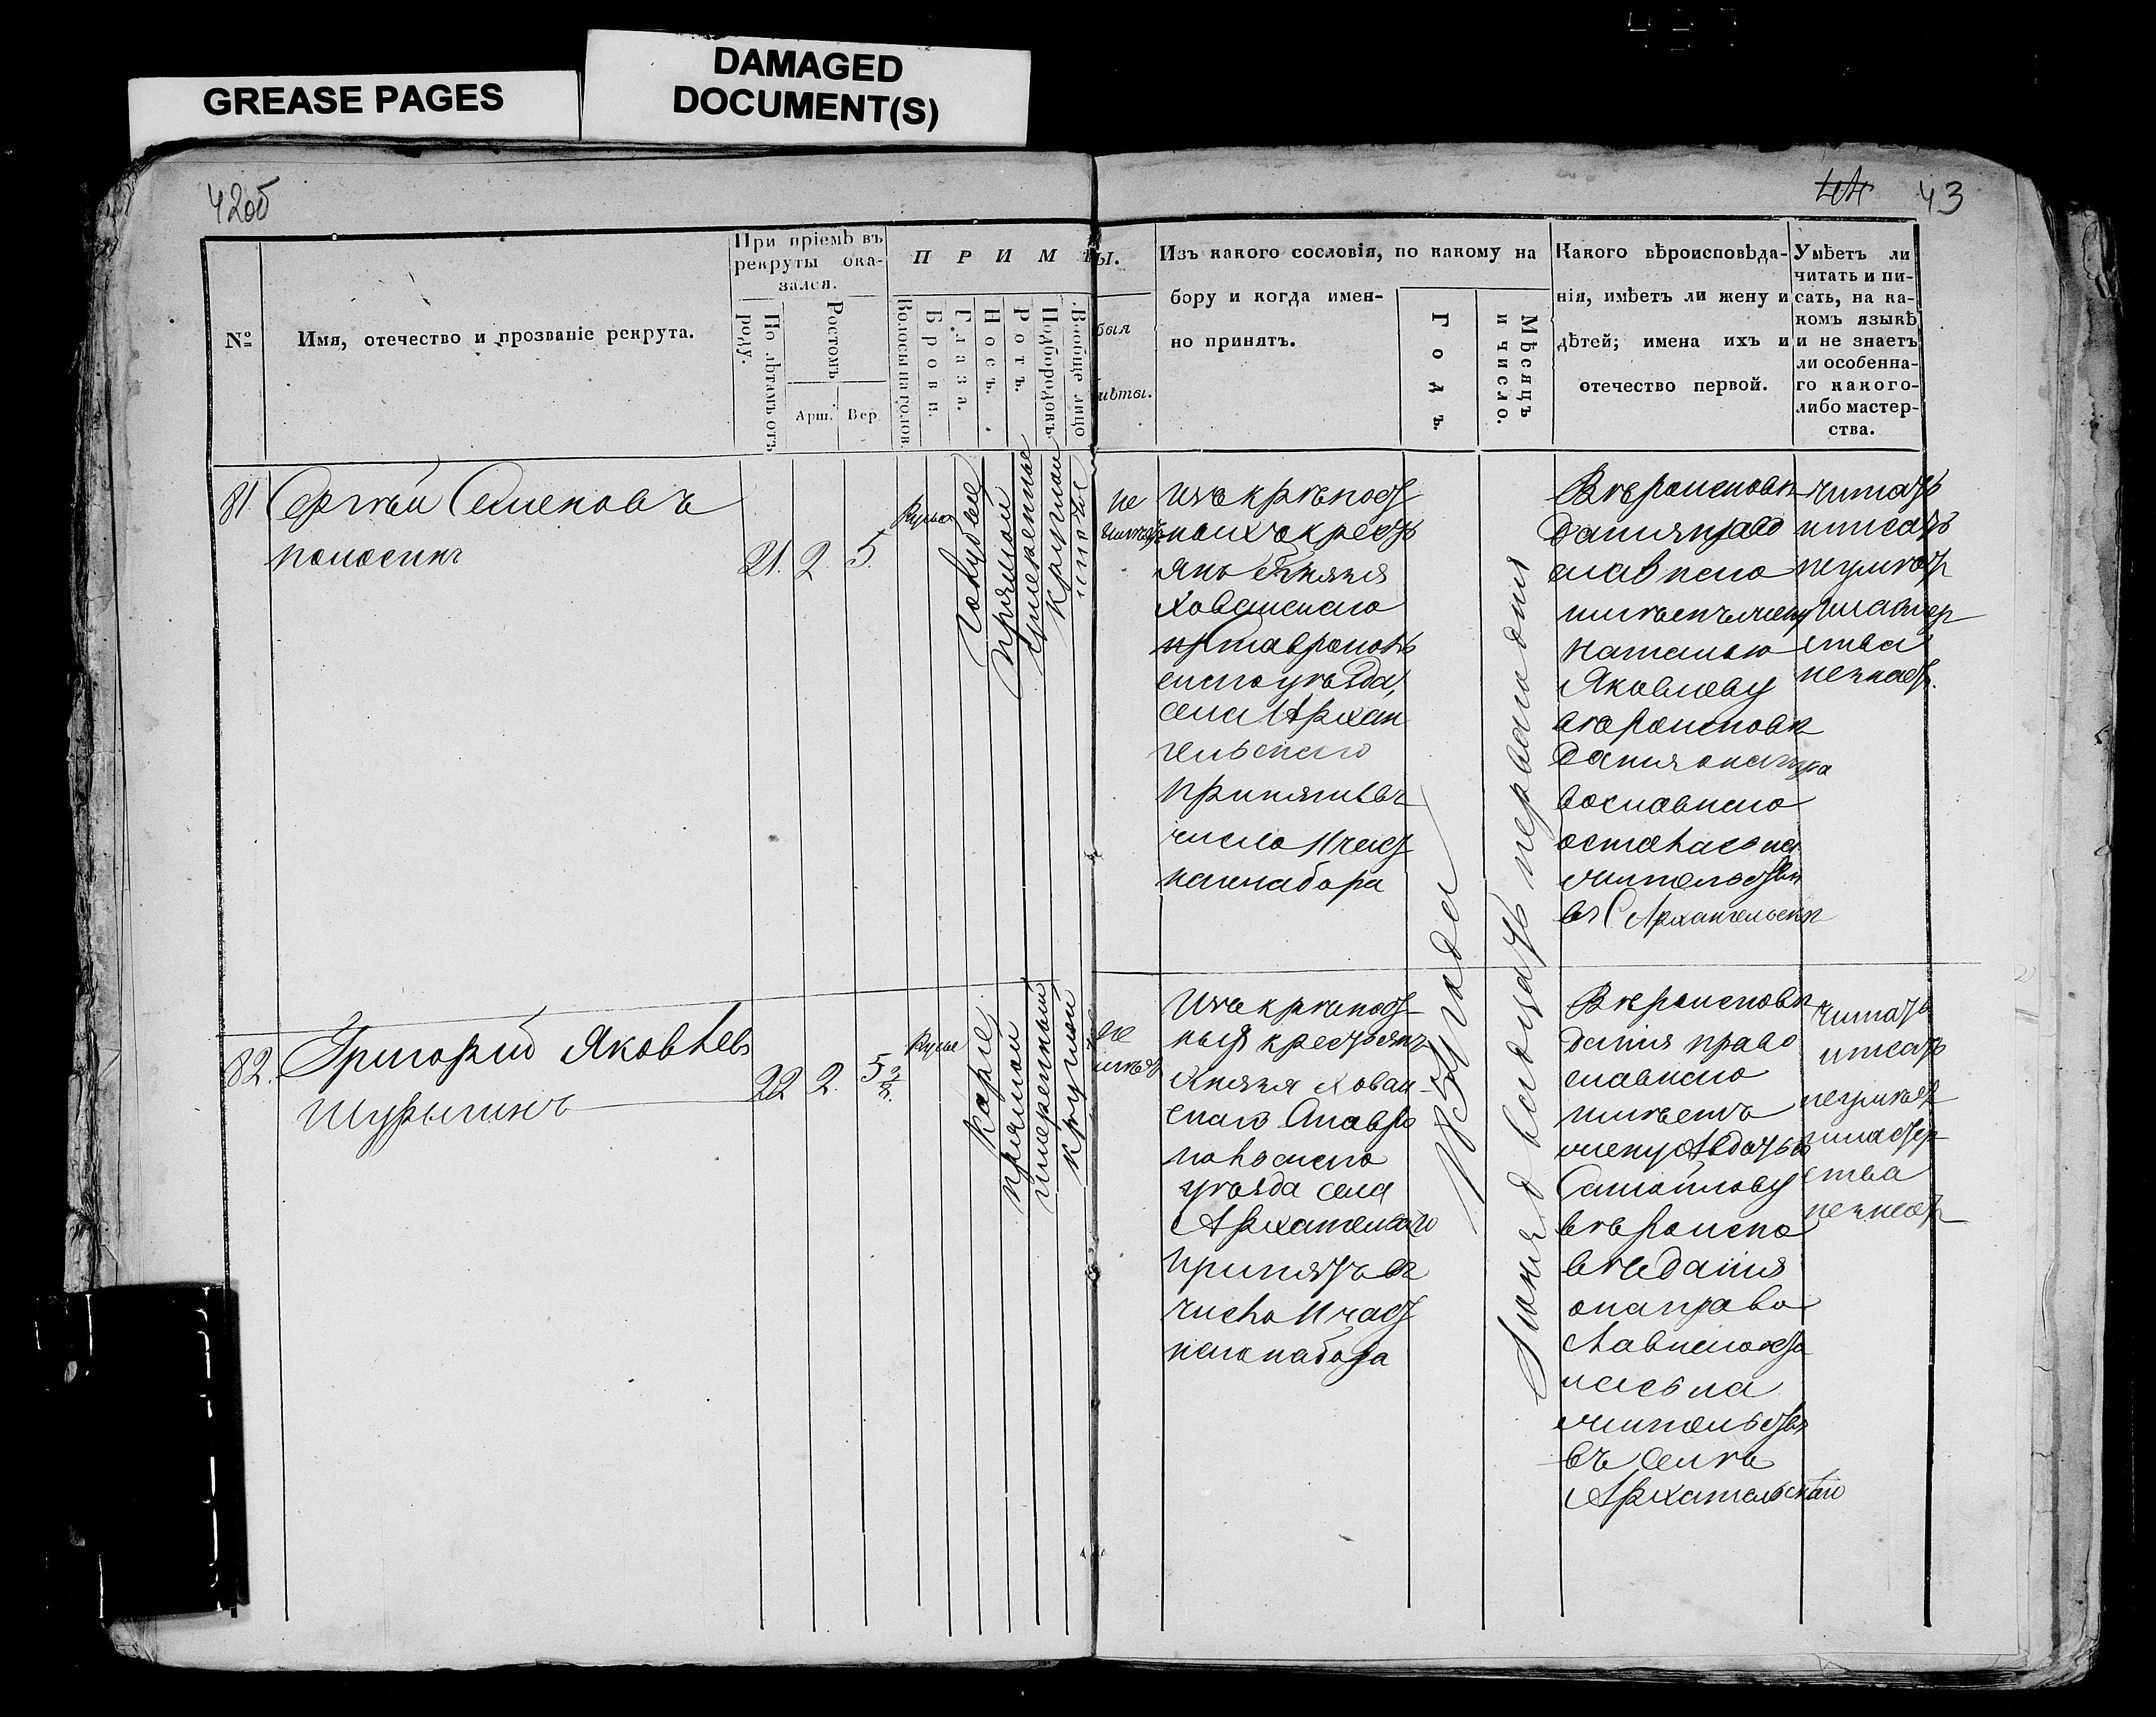 GREASE PAGES
DAMAGED
DOCUMENT(S)
42об
43
№
Имя, отечество и прозваніе рекрута.
При пріемѣ въ
рекруты ока-
зался.
По лѣтамъ отъ
роду.
Ростомъ
Арш.
Вер.
П Р И М Ѣ Т Ы.
Волосы на голов.
Брови.
Глаза.
Носъ.
Ротъ.
Подбородокъ
Вообще лицо
быя
мѣты.
Изъ какого сословія, по какому на
бору и когда имен-
но принятъ.
Годъ.
Мѣсяцъ
и число.
Какого вѣроисповѣда-
нія, имѣетъ ли жену и
дѣтей; имена ихъ и
отечество первой.
Умѣетъ ли
читать и пи-
сать, на ка-
комъ языкѣ
и не знаетъ
ли особенна-
го какого-
либо мастер-
ства.
81
Сергѣй Семеновъ
21. 2. 5.
Русые
голубые
прямой
умеренные
круглый
чистое
не
имѣетъ
изъ крѣпост
ныхъ кресть
янъ Князя
Хованскаго
ставрополь
скаго уѣзда,
села Архан
гельскаго
принятъ въ
число 11 част
наго набора
Вѣроисповѣ
данія право
славнаго
имѣетъ жену
Наталью
Яковлеву
вѣроисповѣ
данія она пра
вославнаго
осталась на
жительствѣ
въ С. Архангельскѣ
читать
писать
неумѣет
мастер
ства
незнает.
1854 года
Іюня двадцать перваго дня
82.
Григорій Яковлевъ
Шурыгинъ
22 2. 5 3/8.
Русые
Каріе
прямой
умеренный
круглый
не
имѣет
Изъ крѣпост-
ныхъ крестьянъ
Князя Хован-
скаго Ставро
польскаго
уѣзда села
Архангельскаго
принятъ въ
число 11 част
наго набора
Вѣроисповѣ
данія право
славнаго
имѣетъ
жену Авдотью
Самойлову
вѣроиспо
вѣданія
она право
славнаго оста
лась на
жительствѣ
въ селѣ
Архангельскаго
читать
писать
неумѣет
мастер-
ства
незнает